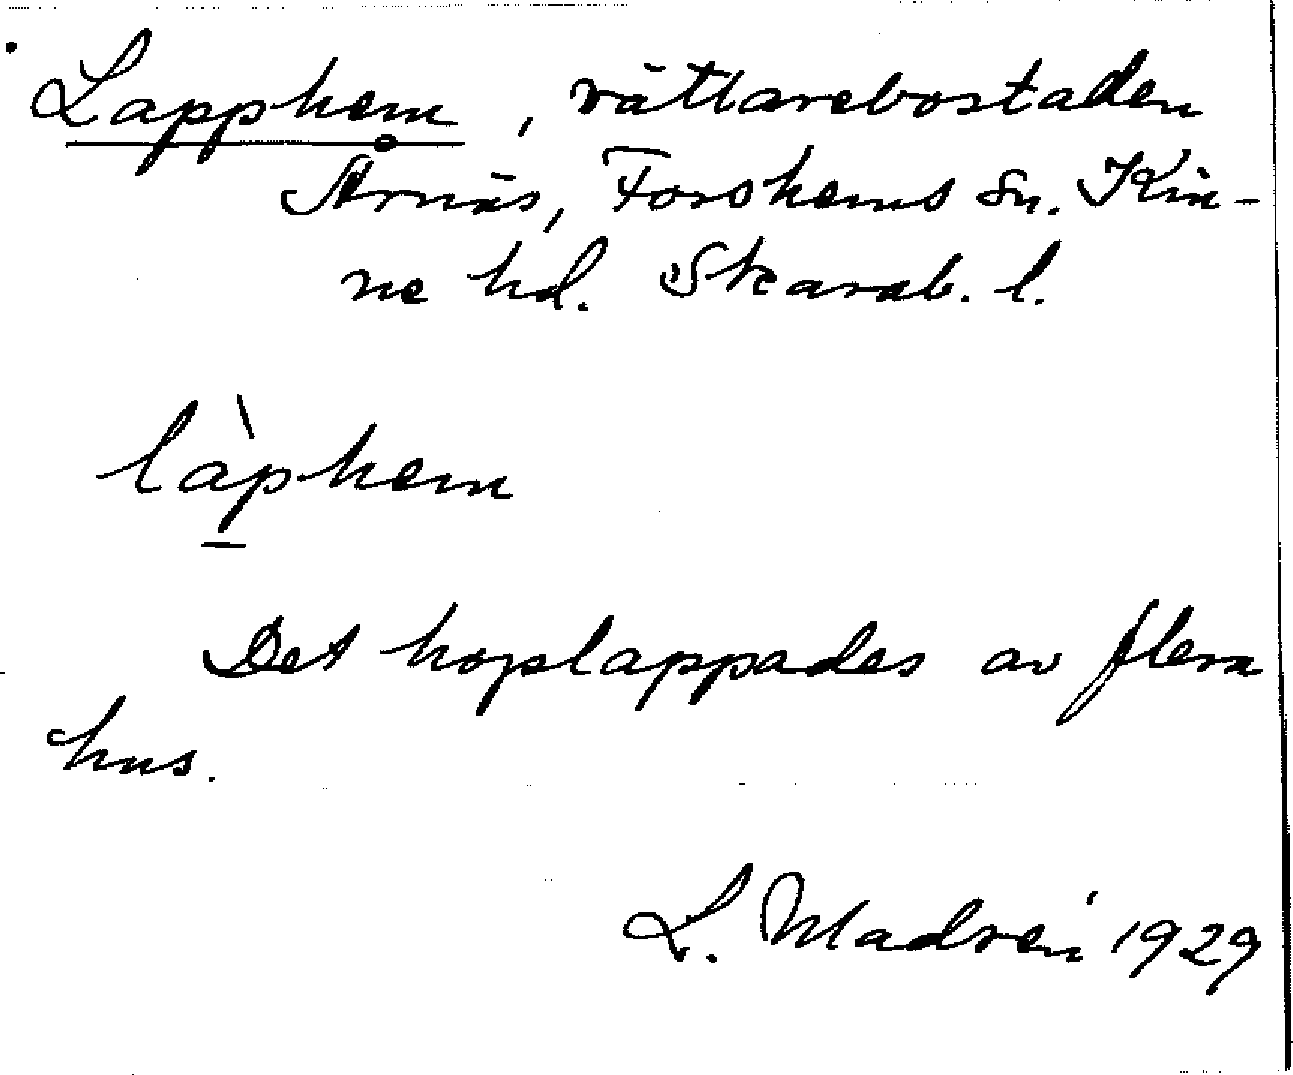 Lapphem, rättarebostaden
Årnäs, Forshems sn. Kin-
ne hd. Skarab. l.
làphem
Det hoplappades av flera
hus.
L. Madren 1929